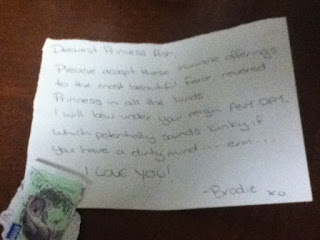 Dearest Princess Ash,
Please accept these humble offerings
to the most beautiful, revered
Princess in all the lands.
I will bow under your reign ANY DAY,
which potentially sounds kinky if
you have a dirty mind ... erm...
I LOVE YOU!
-Brodie xo